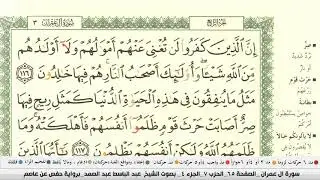 سورة آل عمران ٣
الجزء الرابع
إِنَّ ٱلَّذِينَ كَفَرُوا۟ لَن تُغْنِىَ عَنْهُمْ أَمْوَٰلُهُمْ وَلَآ أَوْلَٰدُهُم
مِّنَ ٱللَّهِ شَيْـًٔا ۖ وَأُو۟لَٰٓئِكَ أَصْحَٰبُ ٱلنَّارِ ۚ هُمْ فِيهَا خَٰلِدُونَ ١١٦
مَثَلُ مَا يُنفِقُونَ فِى هَٰذِهِ ٱلْحَيَوٰةِ ٱلدُّنْيَا كَمَثَلِ رِيحٍ فِيهَا
صِرٌّ أَصَابَتْ حَرْثَ قَوْمٍ ظَلَمُوٓا۟ أَنفُسَهُمْ فَأَهْلَكَتْهُ ۚ وَمَا
ظَلَمَهُمُ ٱللَّهُ وَلَٰكِنْ أَنفُسَهُمْ يَظْلِمُونَ ١١٧ يَٰٓأَيُّهَا ٱلَّذِينَ
صرّ
حرث قوم
بطانة
سورة آل عمران ـ الصفحة ٦٥ ـ الحزب ٧ ـ الجزء ٤ ـ بصوت الشيخ عبد الباسط عبد الصمد برواية حفص عن عاصم